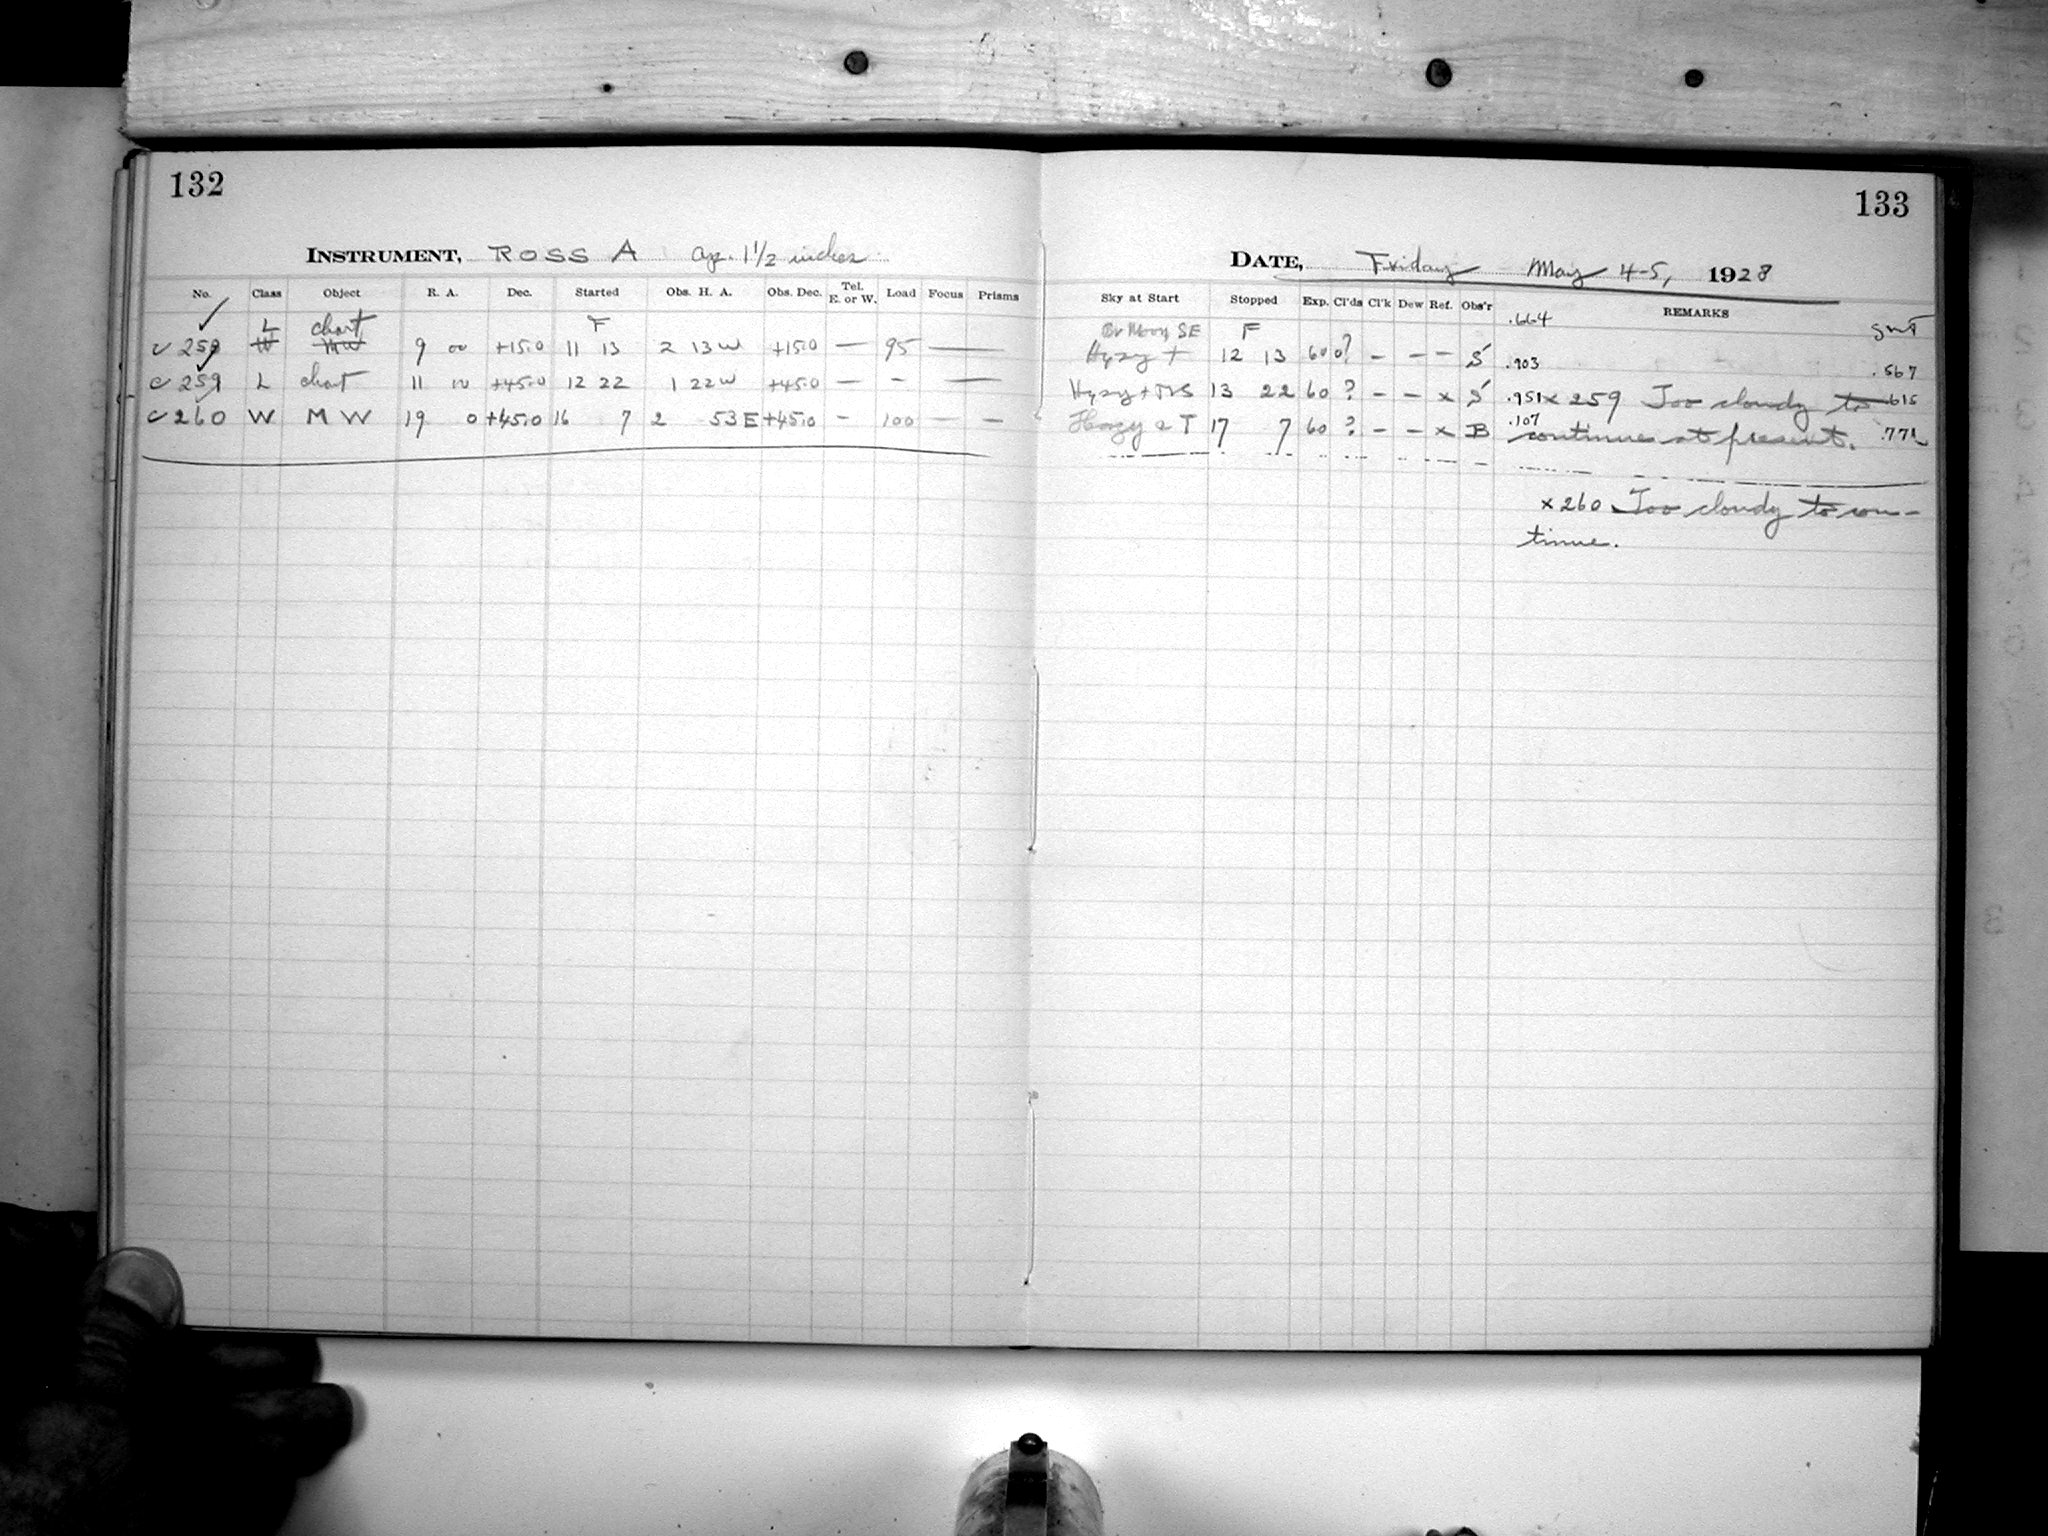 132
133
INSTRUMENT, ROSS A ap. 1 1/2 inches
DATE, Friday May 4-5, 1928
No. Class Object R. A. Dec. Started Obs. H. A. Obs. Dec. Tel. E. or W. Load Focus Prisms
Sky at Start Stopped Exp. Cl'ds Cl'k Dew Ref. Obs'r REMARKS
L chart F
Moon SE F .664 GMT
258 W MW 9 00 +15.0 11 13 2 13 W +15.0 — 95 —
Hazy + 12 13 60 0? – – – S .903 .567
259 L chart 11 00 +45.0 12 22 1 22 W +45.0 — – —
Hazy + 13 22 60 ? – – x S .951 x 259 Too cloudy to .615
c 260 W MW 19 0 +45.0 16 7 2 53 E +45.0 – 100 — —
Hazy 17 7 60 ? – – x B .107 continue at present. .771
x 260 Too cloudy to con-
tinue.